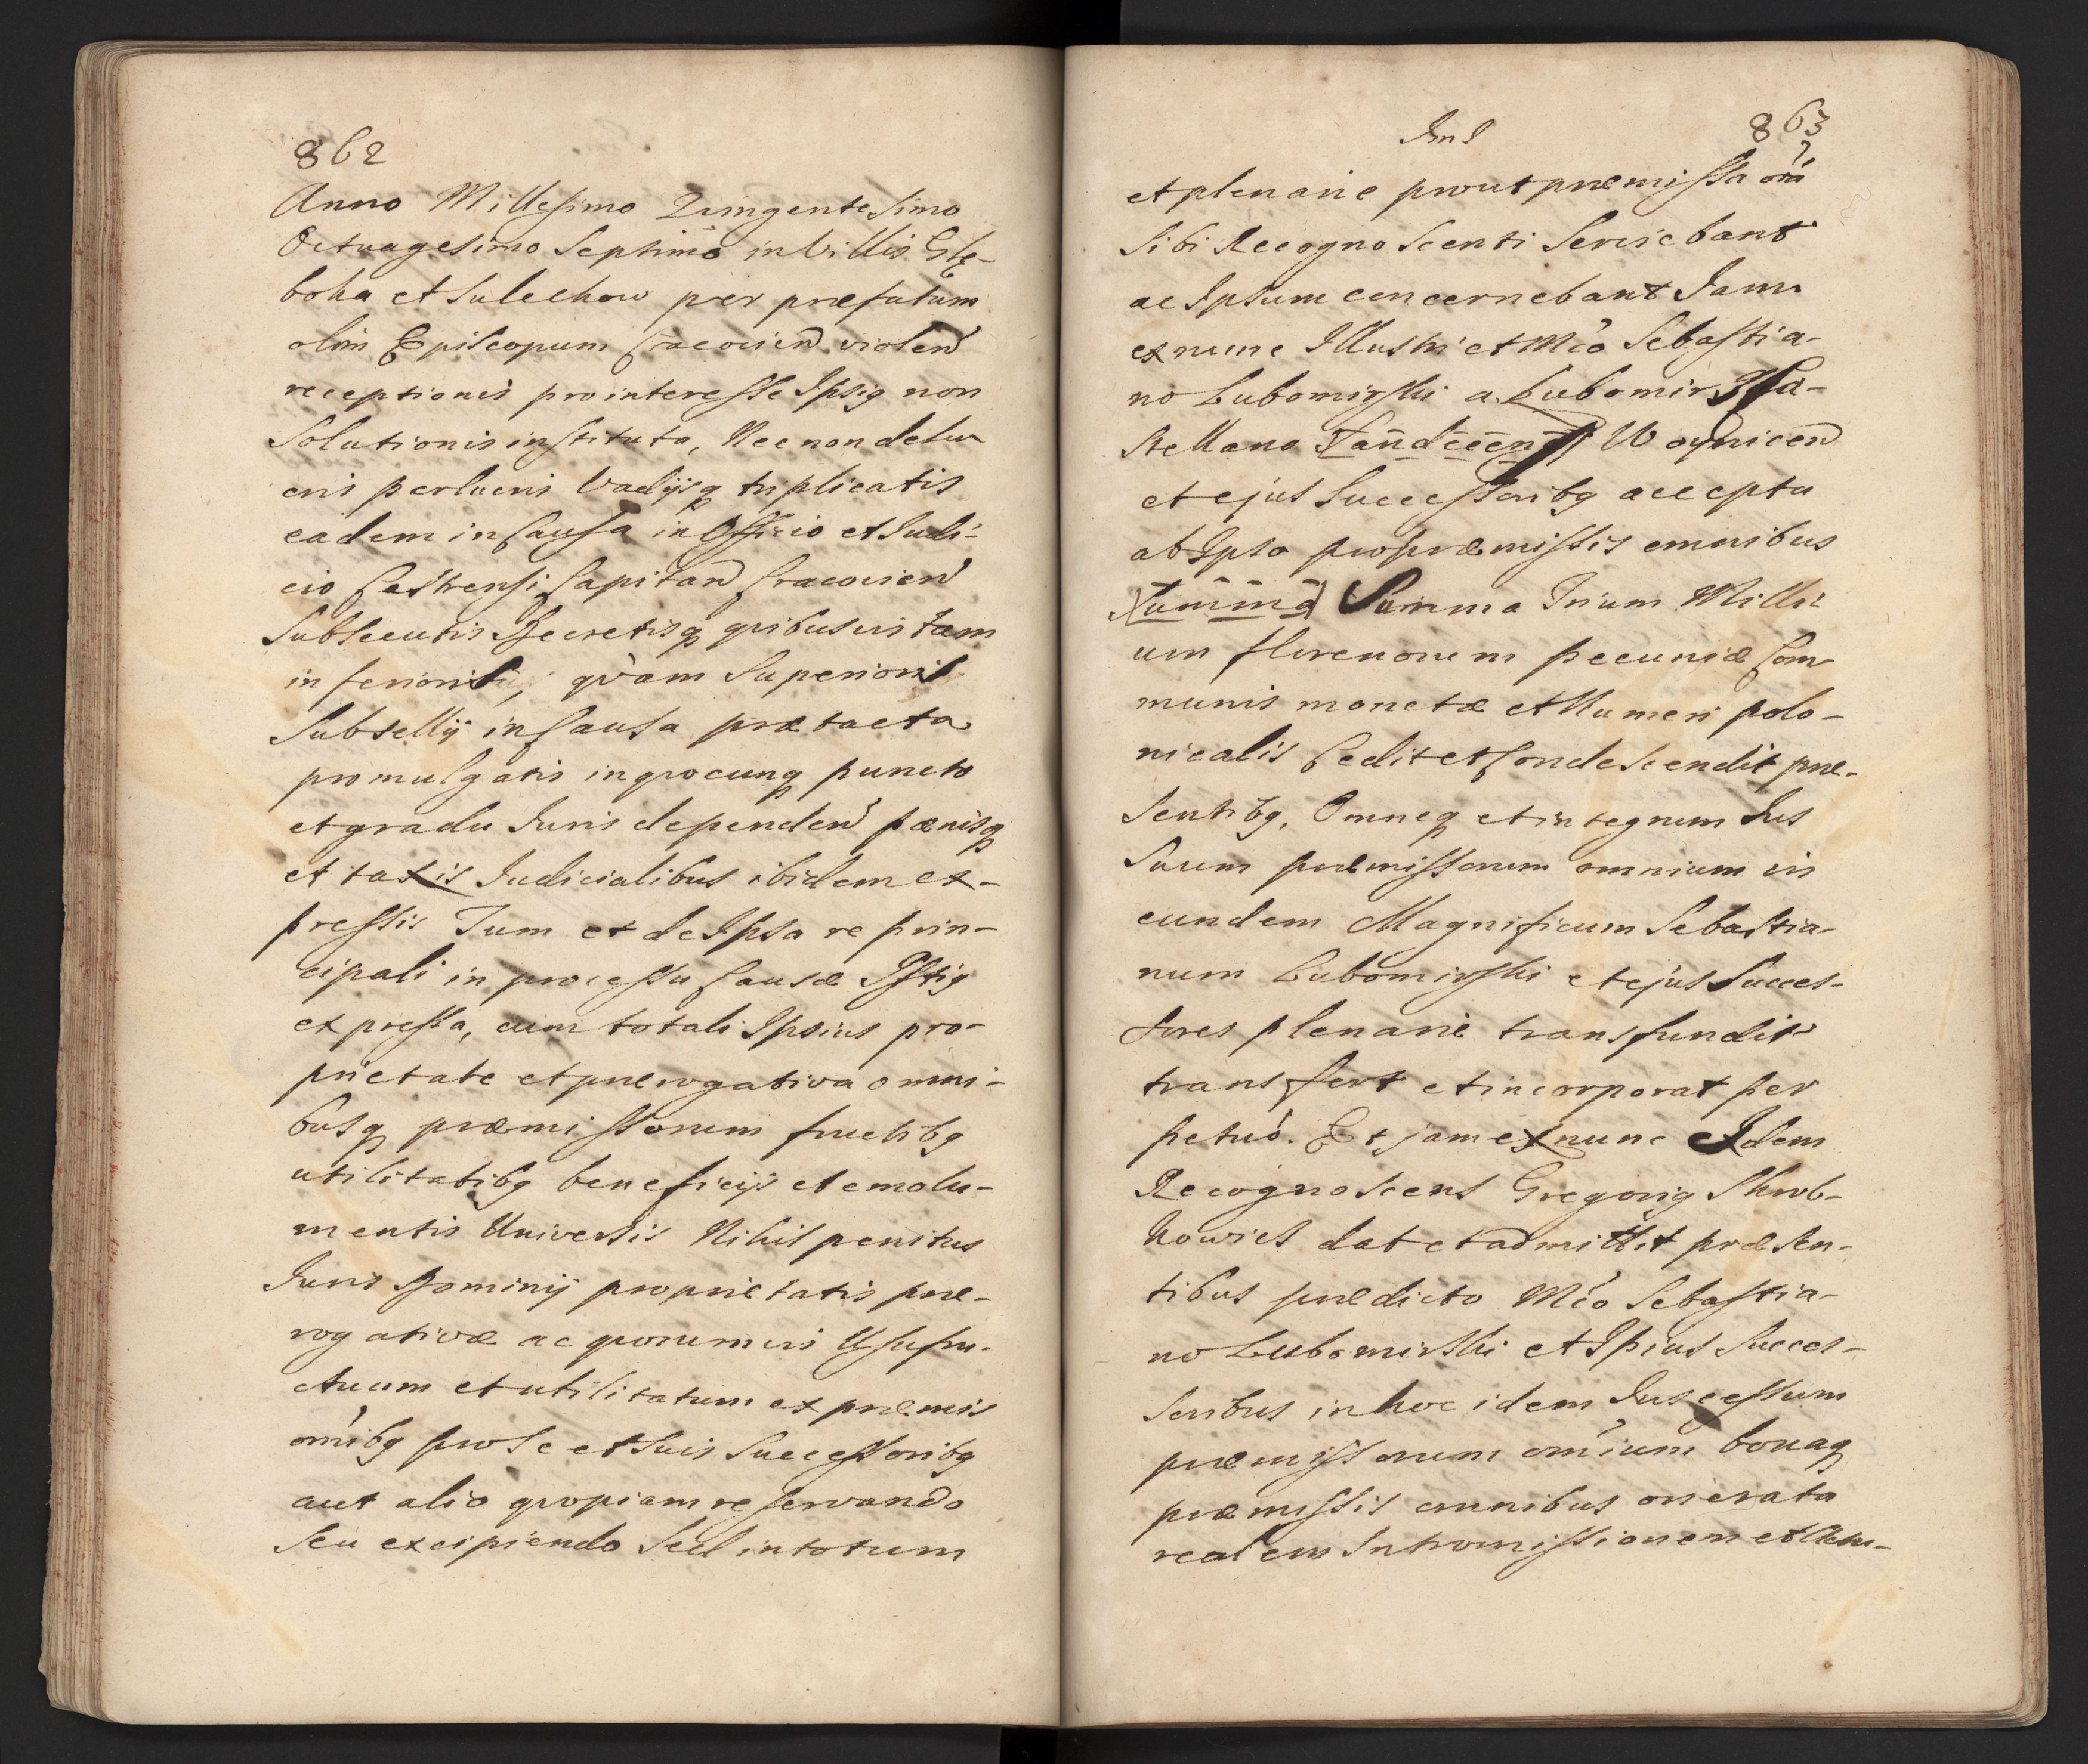 862
Anno Millesimo Quingentesimo
Octuagesimo Septimo in Villis Głę-
boka et Sulechow per præfatum
olim Episcopum Cracovien violen
receptionis pro interesse Ipsiq non
Solutionis instituta, Nec non de lu
cris perlucris Vadijsq triplicatis
eadem in Causa in Officio et Judi-
cio Castrensi Capitan Cracovien
Subsecutis Decretisq quibusvis tam
inferioris, quam Superioris
Subsellij in Causa prætacta
promulgatis in quocunq puncto
et gradu Juris dependen pænisq
et taxis Judicialibus ibidem ex-
pressis Tum et de Ipsa re prin-
cipali in processu Causæ Istiq
expressa, cum totali Ipsius pro-
prietate et prærogativa omni-
busq præmissorum fructibq
utilitatibq beneficijs et emolu-
mentis Universis Nihil penitus
Juris Dominij proprietatis præ-
rogativæ ac quorumvis Usufru-
ctuum et utilitatum ex præmis
omibq pro Se et Suis Successoribq
aut alio quopiam reservando
Seu excipiendo Sed in totum
Ind 863
et plenarie prout præmissa oia
Sibi Recognoscenti Serviebant
ac Ipsum concernebant Jam
ex nunc Illustri et Mco Sebastia-
no Lubomirski a Lubomirz Ca-
stellano Woynicen
et ejus Successoribq accepta
ab Ipso pro præmissis omnibus
Summa Summa Trium Milli
um florenorum pecuniæ Com
munis monetæ et Numeri polo-
nicalis Cedit et Condescendit præ-
sentibq. Omneq et integrum Jus
Suum præmissorum omnium in
eundem Magnificum Sebastia-
num Lubomirski et ejus Succes-
sores plenarie transfundit
transfert et incorporat per
petuò. Et jam ex nunc Idem
Recognoscens Gregoriq Skrob-
kowics dat et admittit præsen-
tibus prædicto Mco Sebastia-
no Lubomirski et Ipsius Succes-
soribus in hoc idem Jus cessum
præmissorum omium bonaq
præmissis omnibus onerata
realem Intromissionem et Actu-